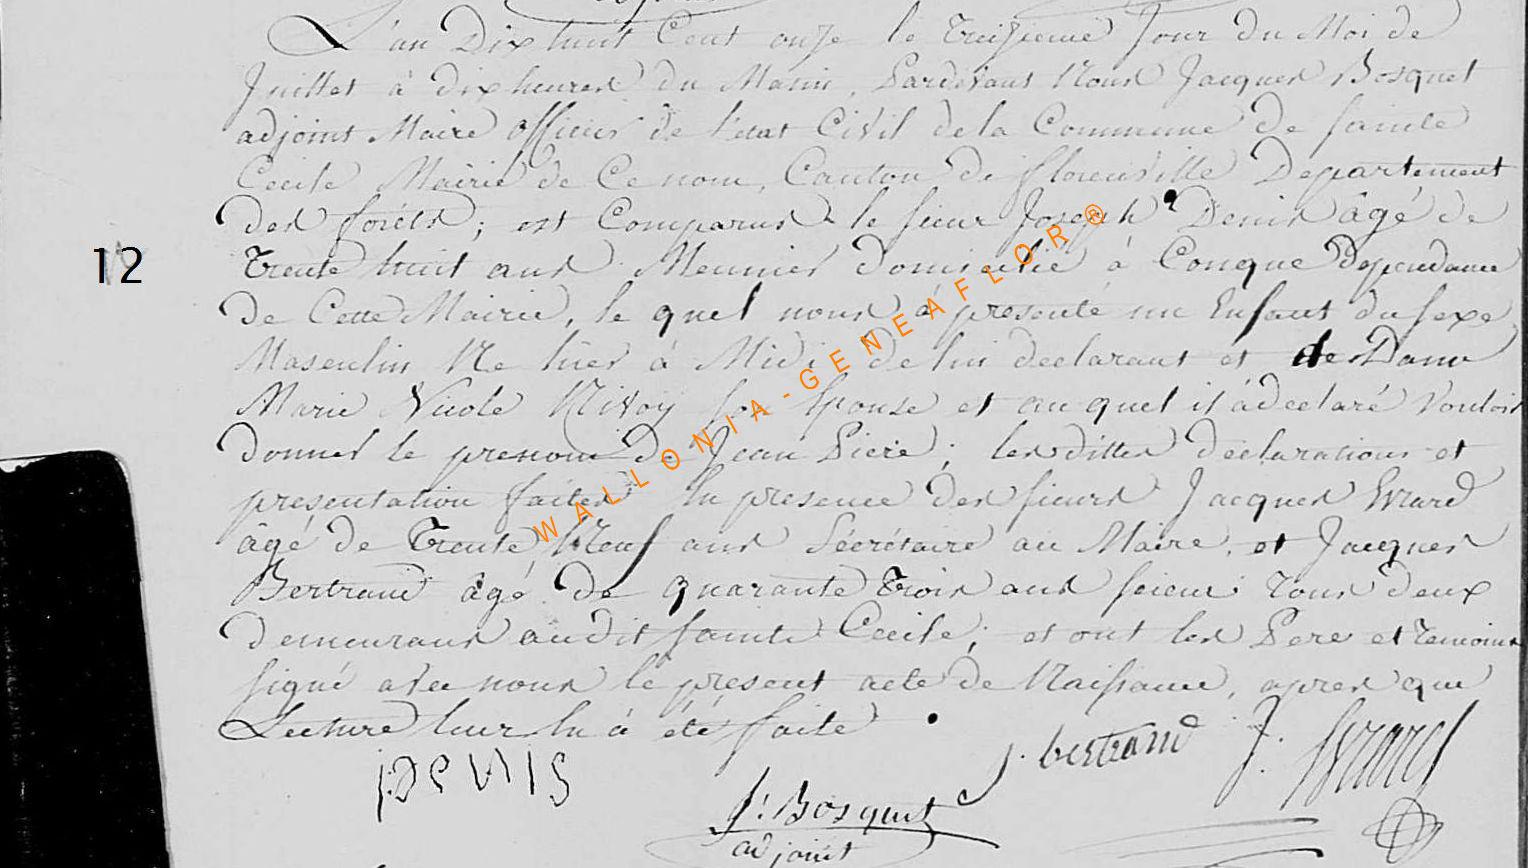 L'an Dix huit Cent onze le treizieme Jour du Mois de
Juillet à dix heures du Matin, Pardevant Nous Jacques Bosquet
adjoint Maire officier de l'état Civil de la Commune de sainte
Cecile Mairie de Ce nom, Canton de florenville Departement
des forêts; est Comparus le sieur Joseph Denis âgé de
12
trente huit ans Meunier domicilié à Conque Dependance
de Cette Mairie, le quel nous à presenté un Enfant du sexe
Masculin Né hier à Midi de lui declarant et de Dame
Marie Nicole Nivoy son Epouse et au quel il à declaré Vouloir
donner le prenom de Jean Piere; les dittes declarations et
presentation faites En presence des sieurs Jacques Evrard
âgé de trente Neuf ans Sécrétaire au Maire, et Jacques
Bertrand âgé de quarante trois ans scieur tous deux
demeurans audit sainte Cecile; et ont les Pere et temoins
signé avec nous le present acte de Naissance, apres que
Lecture leur en à été faite
J. DENIS
j. bertrand
J. Evrard
J: Bosquet
adjoint
WALLONIA-GENEAFLOR®